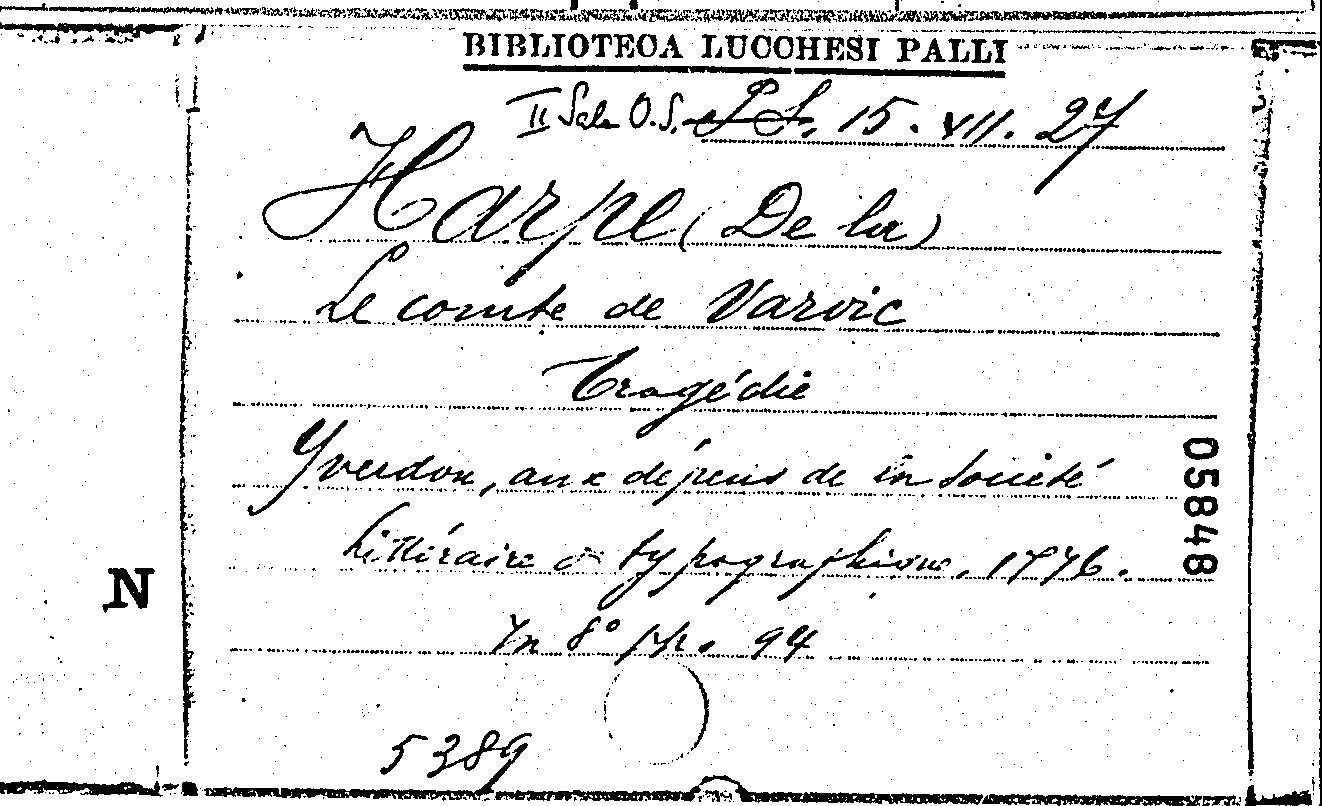 BIBLIOTECA LUCCHESI PALLI
II Sala O.S. P.S. 15. VII. 27
Harpe (De la)
Le comte de Varvic
Tragédie
Yverdon, aux dépens de la Société
littéraire & typographique, 1776.
In 8° pp. 94
5389
05848
N